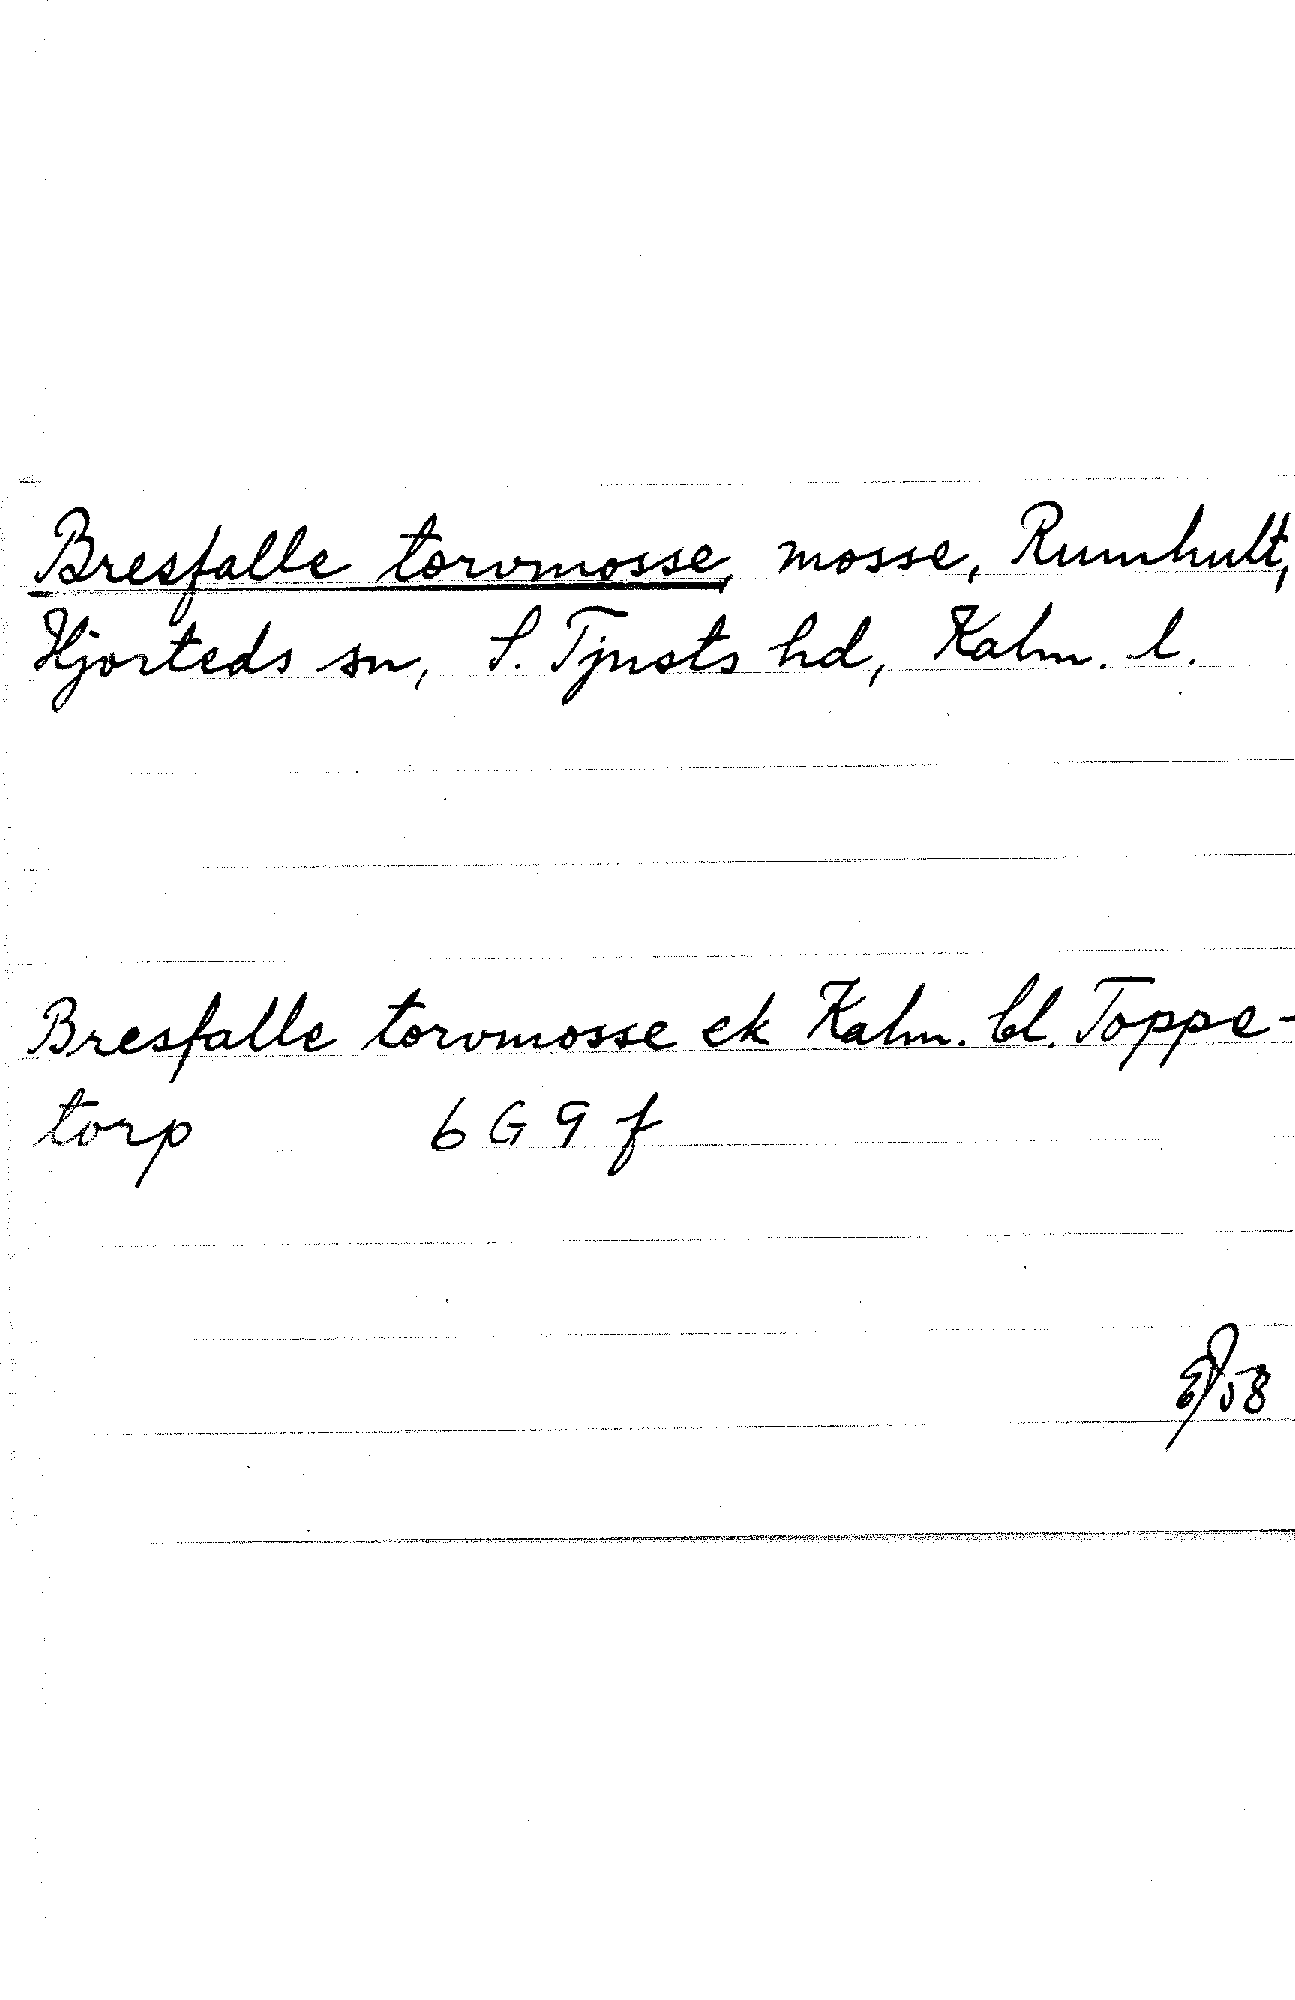 Bresfalle torvmosse, mosse, Rumhult,
Hjorteds sn, S. Tjusts hd, Kalm. l.
Bresfalle torvmosse ek Kalm. bl. Toppe-
torp 6 G 9 f
58